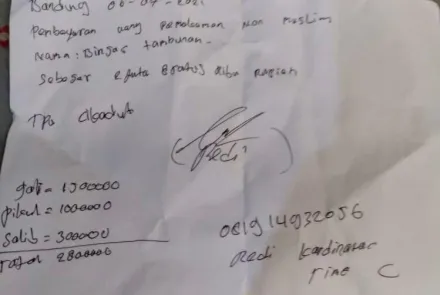 Bandung 06-07-2021
Pembayaran uang Pemakaman Non Muslim
Nama : Binsar Tambunan -
Sebesar 2 juta 8 ratus Ribu Rupiah
TPU Cikadut
(Redi)
gali = 1500000
pikul = 1000000
Salib = 300000
Total 2800000
081914932056
Redi Kordinator
Time C